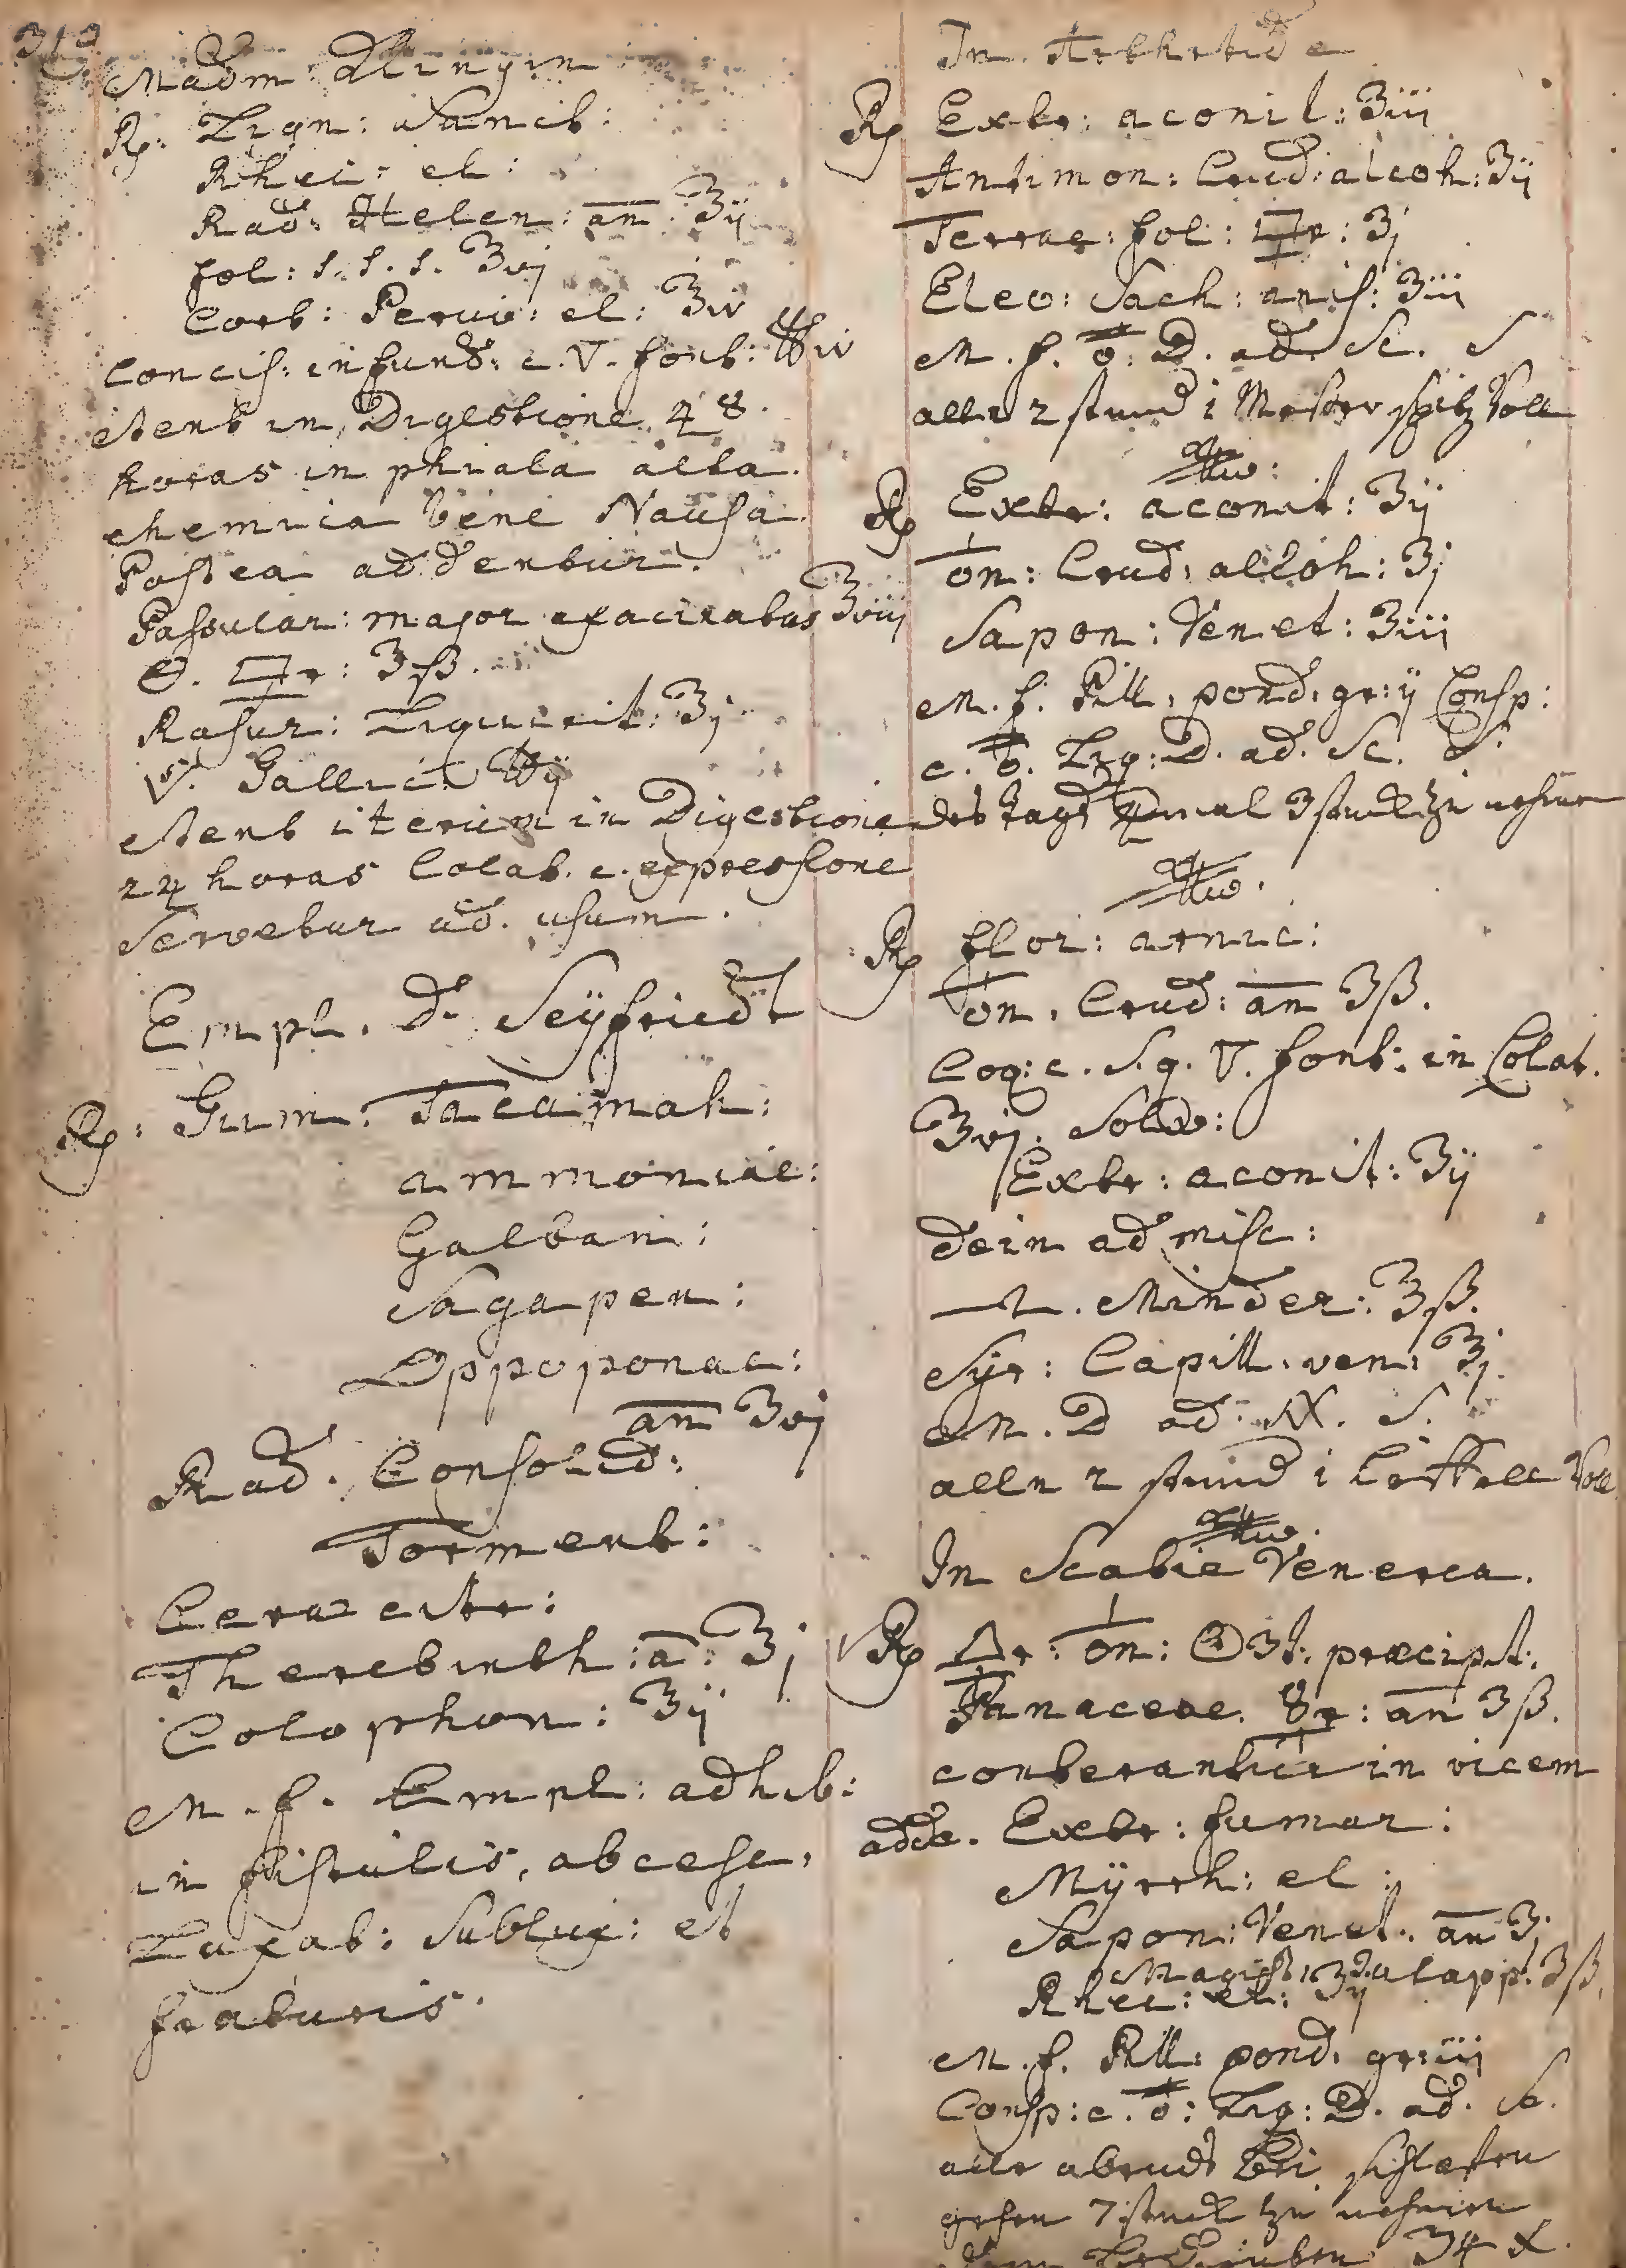 313
Madm
Rp: Lign: Sanct:
Rhei: el:
Rad: Helen: an: ʒij
fol: s. s. s. ʒvj
Cort: Peruv: el: ʒiv
Concis: infund: c. V. font: ℔iv
stent in Digestione 48.
horas in phiala alta
chemica bene
Postea addentur.
Passular: major exacinatas ʒviij
ʒß.
Rasur: Liquirit: ʒj
V. Gallici ℔ij
stent iterum in Digestione
24 horas Colat. c. expressione
Servetur ad. usum.
Empl. D. Seÿfriedt
Rp: Gum: Tacamah:
ammoniac:
Galban:
Sagapen:
Oppoponac:
an ʒvj
Rad. Consolid:
Torment:
Cerae citr:
Therebinth: a: ʒj
Colophon: ʒij
M. f. Empl: adhib:
in fistulis, abcess,
Luxat: Sublux: et
fraturis.
In Arthritide
Rp Extr: aconit: ʒiii
Antimon: Crud: alcoh: ʒij
Terrae: fol: ʒj
Eleo: Sach: anis: ʒiii
M. f. D. ad. Sc. S
alle 2 stund 1 Messer spitz voll
Rp Extr: aconit: ʒij
on: Crud. alcoh: ʒj
Sapon: Venet: ʒiii
M. f. Pill. pond. gr: ij Consp:
c. Liq: D. ad. Sc. S.
des tags 3
Rp flor: arnic:
on. Crud: an ʒß.
Coq: c. S. q. V. font: in Colat.
ʒvj. Solv:
Extr: aconit: ʒij
dein ad misc:
Minder: ʒß.
Syr: Capill. ven: ʒj.
M. D ad. S.
alle 2 stund 1 Löffell voll
In Scabie Venerea.
Rp on: præcipit:
Panaceae. an ʒß.
conterantur in vicem
adde. Extr: fumar:
Mÿrrh: el:
Sapon: Venet. an ʒj
Magist: Jalapp: ʒß.
Rhei: el: ʒij
M. f. Pill: pond. gr: iij
Consp: c. Liq: D. ad. Sc.
alle abends bei schlaffen
gehen 7 stuck zu nehmen